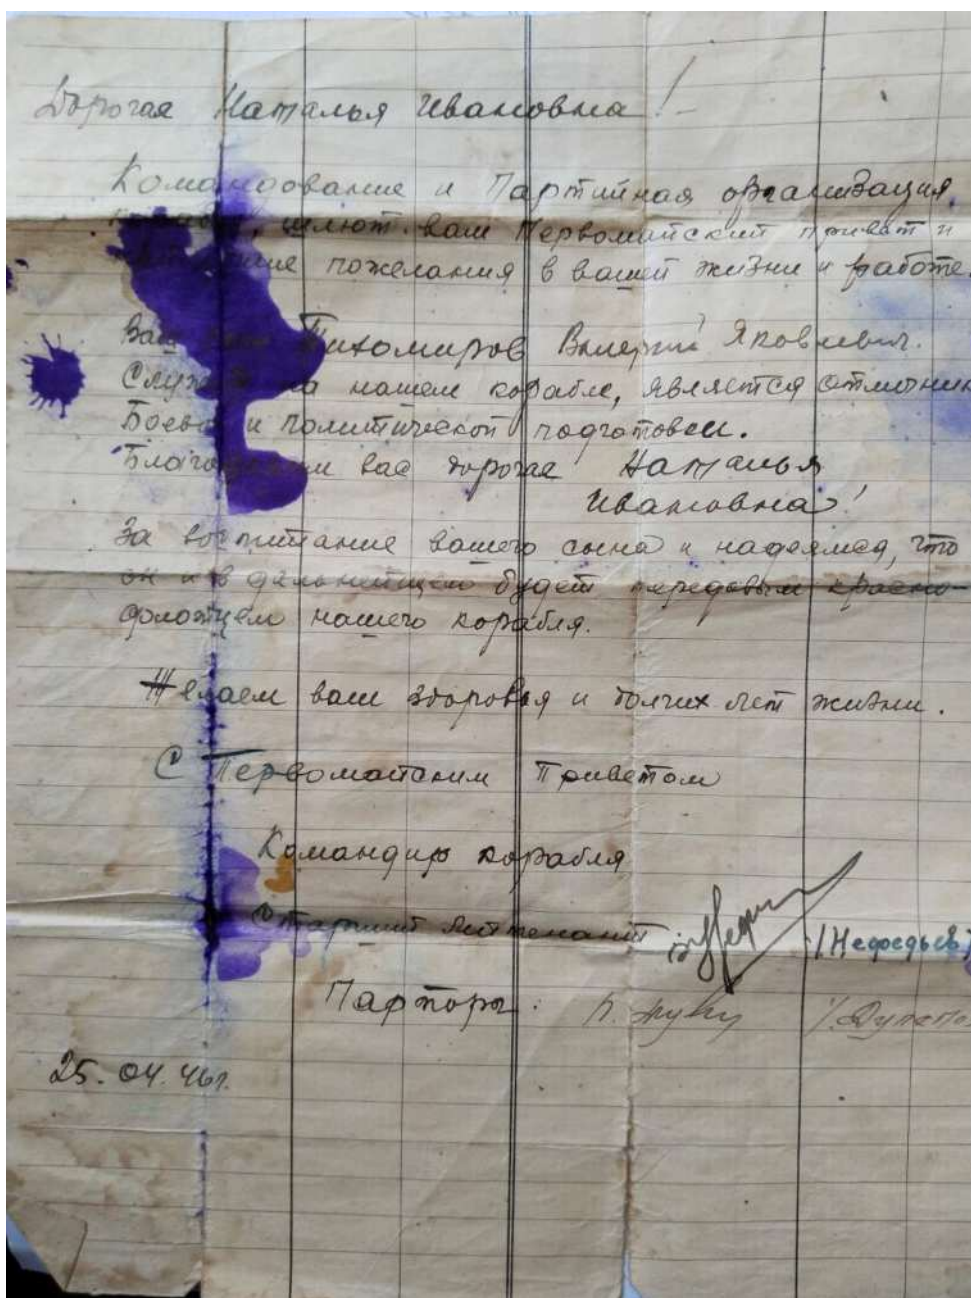 Дорогая Наталья Ивановна!
Командование и Партийная организация
шлют вам Первомайский привет и
пожелания в вашей жизни и работе.
Ваш Тихомиров Валерий Яковлевич.
на нашем корабле, является отличник
Боевой и политической подготовки.
Благодарим вас дорогая Наталья
Ивановна!
За воспитание вашего сына и надеемся, что
он и в дальнейшем будет передовым красно-
флотцем нашего корабля.
Желаем вам здоровья и долгих лет жизни.
С Первомайским Приветом
Командир корабля
Старший лейтенант /Нефедьев/
Парторг:
25.04.46г.